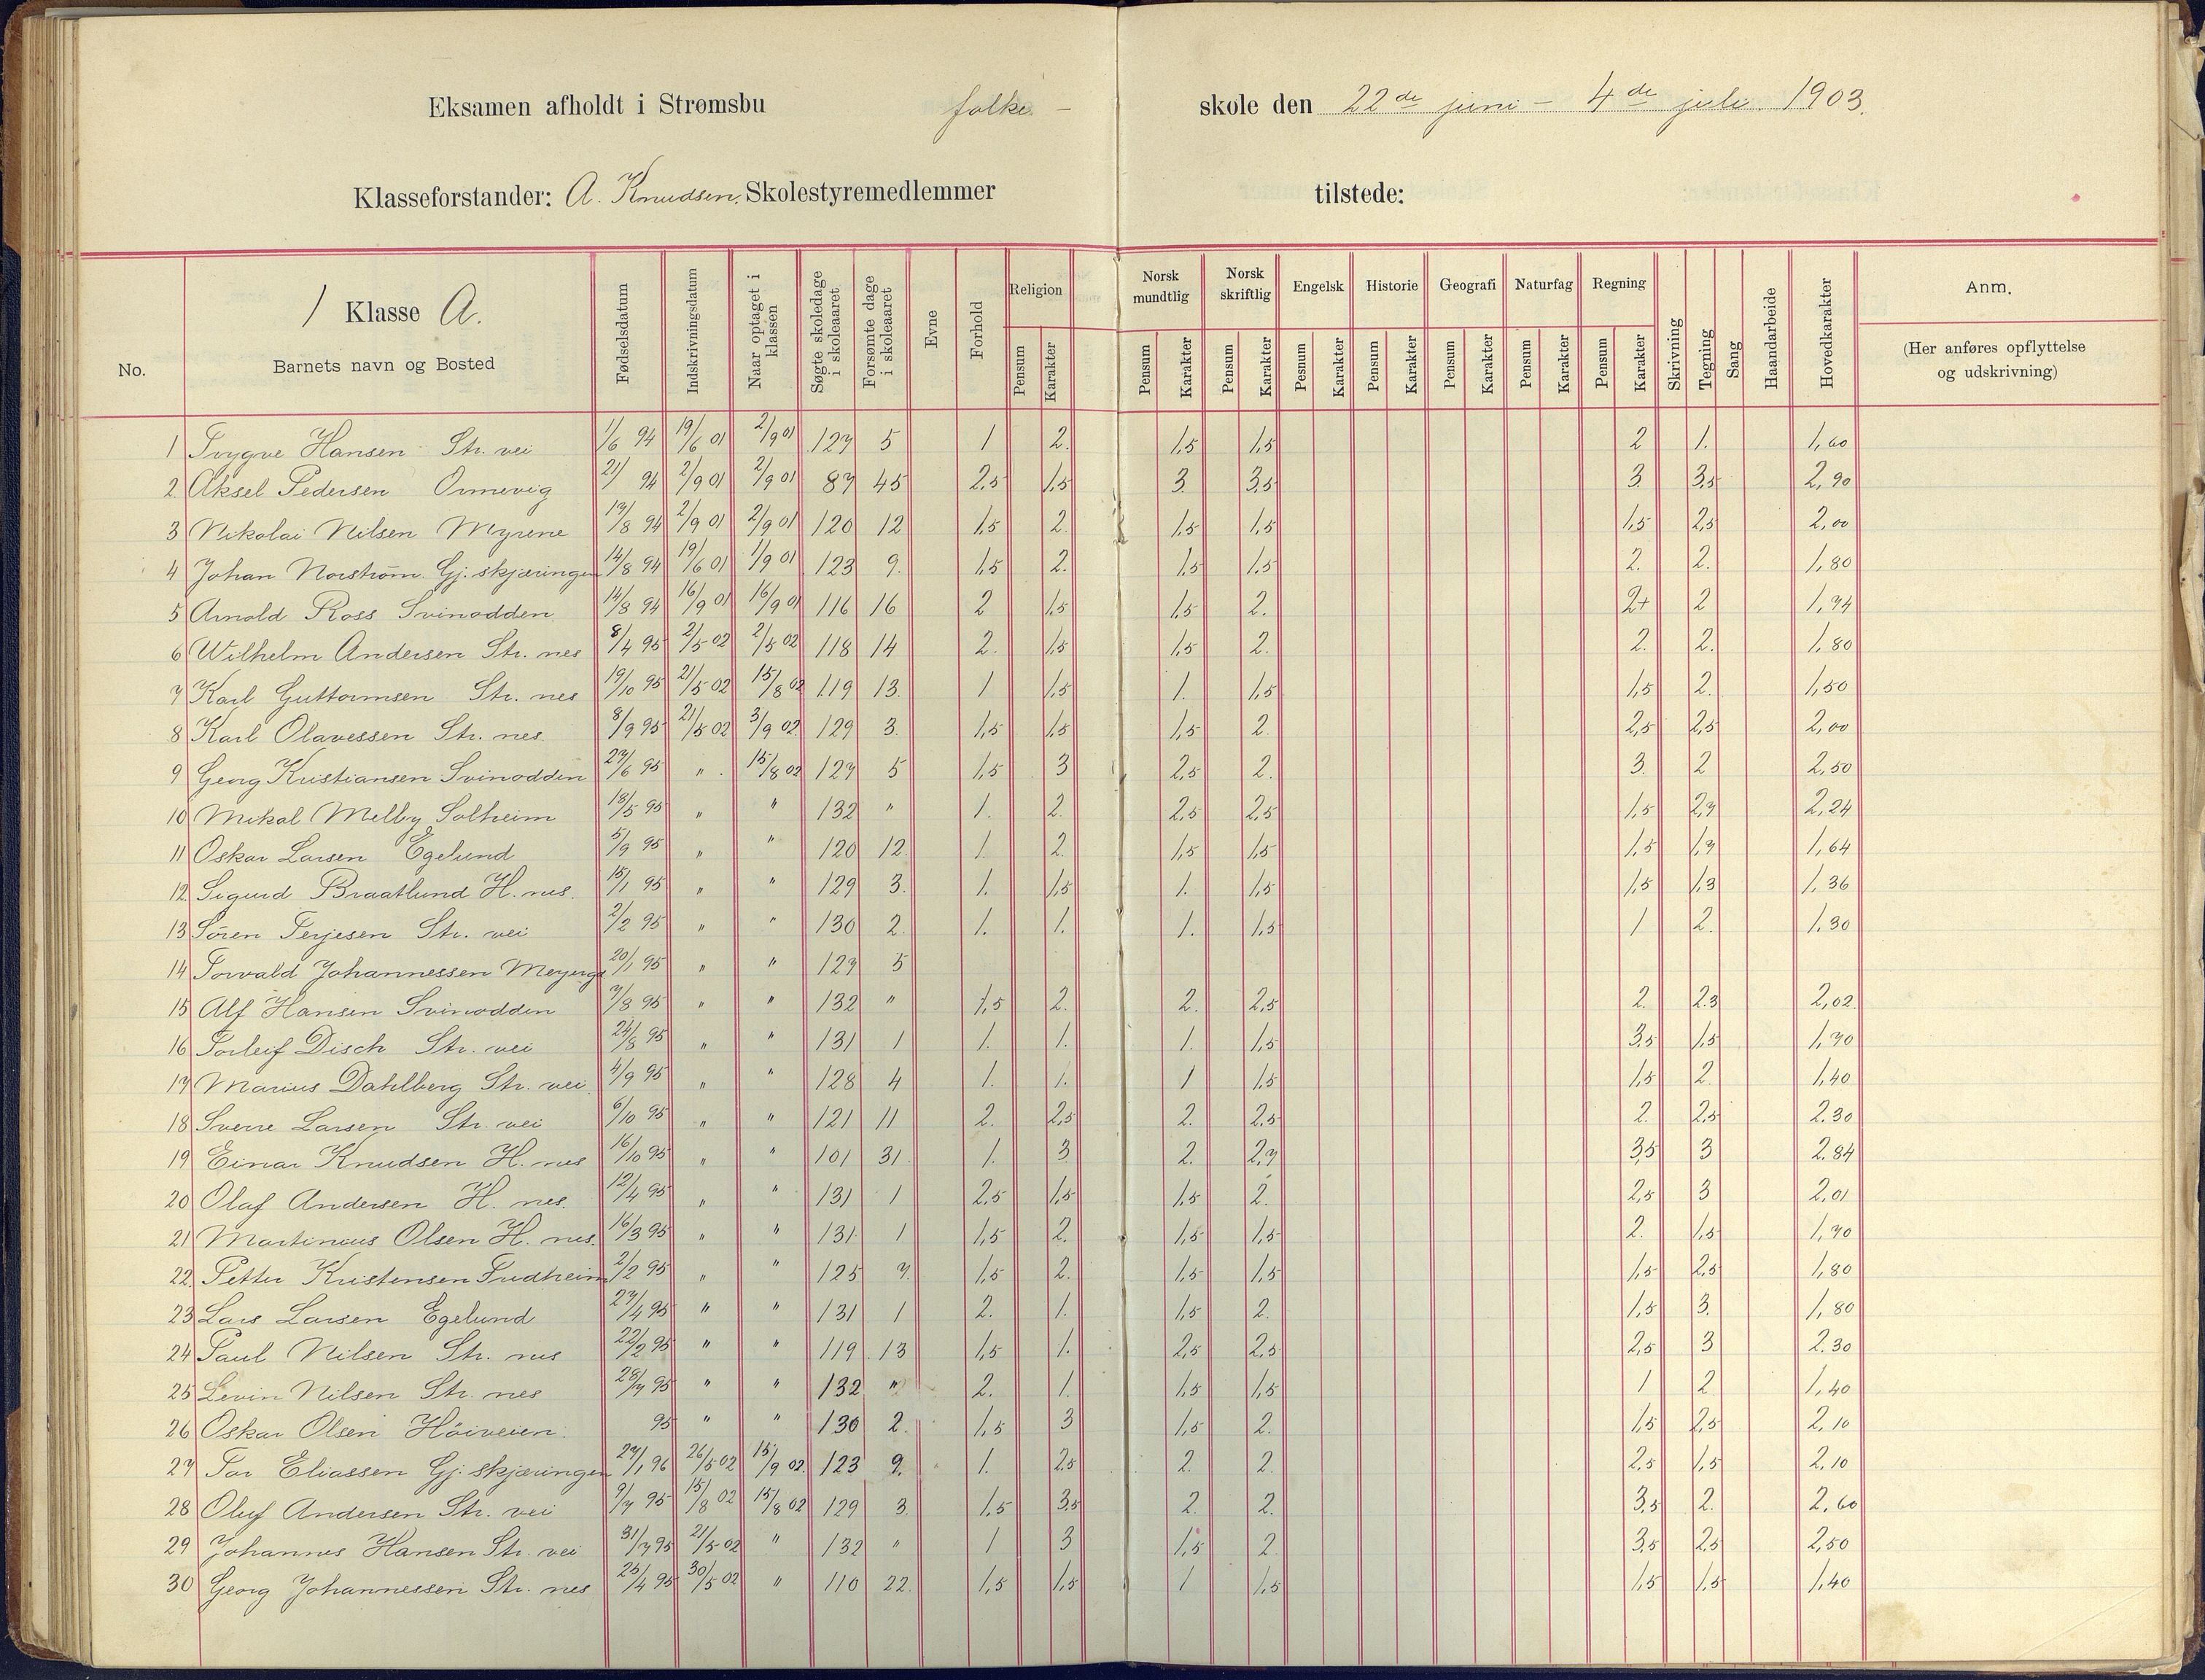 Eksamen afholdt i Strømsbu folke - skole den 22de juni - 4de juli 1903.
Klasseforstander: A. Knudsen. Skolestyremedlemmer tilstede:
No. 1 Klasse A. Barnets navn og Bosted Fødselsdatum Indskrivningsdatum Naar optaget i klassen Søgte skoledage i skoleaaret Forsømte dage i skoleaaret Evne Forhold Religion Pensum Karakter Norsk mundtlig Pensum Karakter Norsk skriftlig Pensum Karakter Engelsk Pesnum Karakter Historie Pensum Karakter Geografi Pensum Karakter Naturfag Pensum Karakter Regning Pensum Karakter Skrivning Tegning Sang Haandarbeide Hovedkarakter Anm. (Her anføres opflyttelse og udskrivning)
1 Trygve Hansen Str. vei 1/6 94 19/6 01 2/9 01 127 5 1 2. 1,5 1,5 2 1. 1,60
2 Aksel Pedersen Ormevig 21/ 94 2/9 01 2/9 01 87 45 2,5 1,5 3. 3,5 3. 3,5 2,90
3 Nikolai Nilsen Myrene 17/8 94 2/9 01 2/9 01 120 12 1,5 2. 1,5 1,5 1,5 2,5 2,00
4 Johan Norström Gj. skjæringen 14/8 94 19/6 01 1/9 01 123 9. 1,5 2. 1,5 1,5 2. 2. 1,80
5 Arnold Ross Svinodden 14/8 94 16/9 01 16/9 01 116 16 2 1,5 1,5 2. 2+ 2 1,74
6 Wilhelm Andersen Str. nes 8/4 95 2/5 02 2/5 02 118 14 2. 1,5 1,5 2. 2. 2. 1,80
7 Karl Guttormsen Str. nes 19/10 95 21/5 02 15/8 02 119 13. 1 1,5 1. 1,5 1,5 2. 1,50
8 Karl Olavessen Str. nes. 8/9 95 21/5 02 3/9 02 129 3. 1,5 1,5 1,5 2 2,5 2,5 2,00
9 Georg Kristiansen Svinodden 27/6 95 " 15/8 02 127 5 1,5 3 2,5 2. 3. 2 2,50
10 Mikal Melby Solheim 18/5 95 " " 132 " 1. 2. 2,5 2,5 1,5 2,7 2,24
11 Oskar Larsen Egelund 5/9 95 " " 120 12. 1. 2. 1,5 1,5 1,5 1,7 1,64
12. Sigurd Braatlund H. nes. 15/1 95 " " 129 3. 1. 1,5 1. 1,5 1,5 1,3 1,36
13 Sören Terjesen Str. vei 2/2 95 " " 130 2. 1. 1. 1. 1,5 1 2. 1,30
14 Torvald Johannessen 20/1 95 " " 127 5
15 Alf Hansen Svinodden 7/8 95 " " 132 " 1,5 2. 2. 2,5 2. 2.3 2,02.
16 Torleif Disch Str. vei 24/8 95 " " 131 1 1. 1. 1. 1,5 3,5 1,5 1,70
17 Marius Dahlberg Str. vei. 4/9 95 " " 128 4 1. 1. 1 1,5 1,5 2. 1,40
18 Sverre Larsen Str. vei 6/10 95 " " 121 11 2. 2,5 2. 2,5 2. 2,5 2.30
19 Einar Knudsen H. nes 16/10 95 " " 101 31. 1. 3 2. 2,7 3,5 3 2.84
20 Olaf Andersen H. nes. 12/4 95 " " 131 1 2,5 1,5 1,5 2. 2,5 3 2,01
21 Martinius Olsen H. nes. 16/3 95 " " 131 1 1,5 2. 1,5 1,5 2. 1,5 1,70
22. Petter Kristensen Fredheim 2/2 95 " " 125 7. 1,5 2. 1,5 1,5 1,5 2,5 1,80
23 Lars Larsen Egelund 27/4 95 " " 131 1 2. 1. 1,5 2. 1,5 3. 1,80
24 Paul Nilsen Str. nes 22/2 95 " " 119 13 1,5 1. 2,5 2,5 2,5 3 2.30
25 Levin Nilsen Str. nes 28/7 95 " " 132 " 2. 1. 1,5 1,5 1 2 1,40
26 Oskar Olsen Höiveien. 95 " " 130 2. 1,5 3 1,5 2. 1,5 2,5 2,10
27 Tor Eliassen Gj. skjæringen 27/1 96 26/5 02 15/9 02. 123 9. 1. 2,5 2. 2. 2,5 1,5 2,10
28 Oluf Andersen Str. vei 9/7 95 15/8 02 15/8 02 129 3 1,5 3,5 2 2. 3,5 2. 2,60
29 Johannes Hansen Str. vei 31/7 95 21/5 02 " 132 " 1 3 1,5 2 3,5 2,5 2,50
30 Georg Johannessen Str. nes 25/4 95 30/5 02 " 110 22. 1,5 1,5 1 1,5 1,5 1,5 1,40